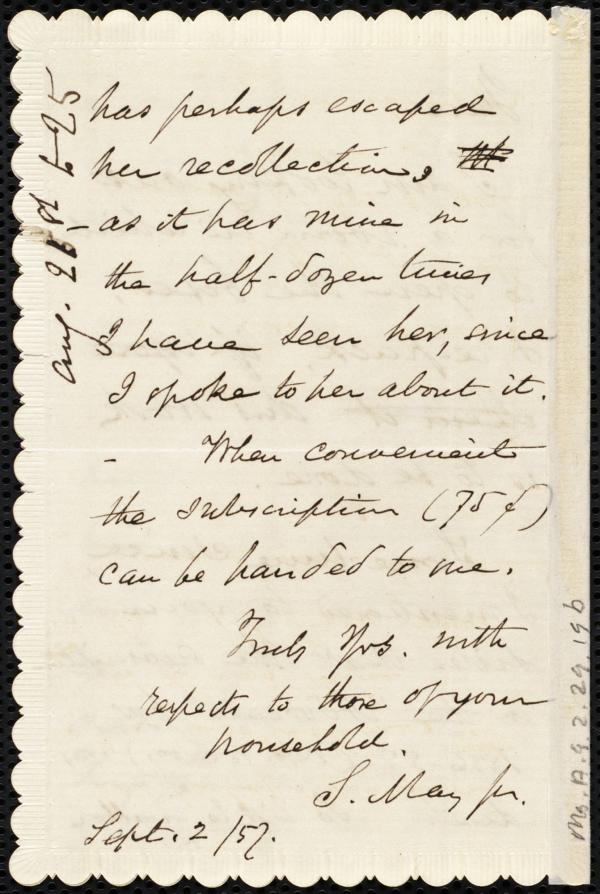 has perhaps escaped
her recollection,
- as it has mine in
the half-dozen times
I have seen her, since
I spoke to her about it.
- When convenient
the subscription (75¢)
can be handed to me.
Truly Yrs. with
respects to those of your
household.
S. May jr.
Sept. 2 /57.
Aug. 21
Ms. A.9.2.29.19b